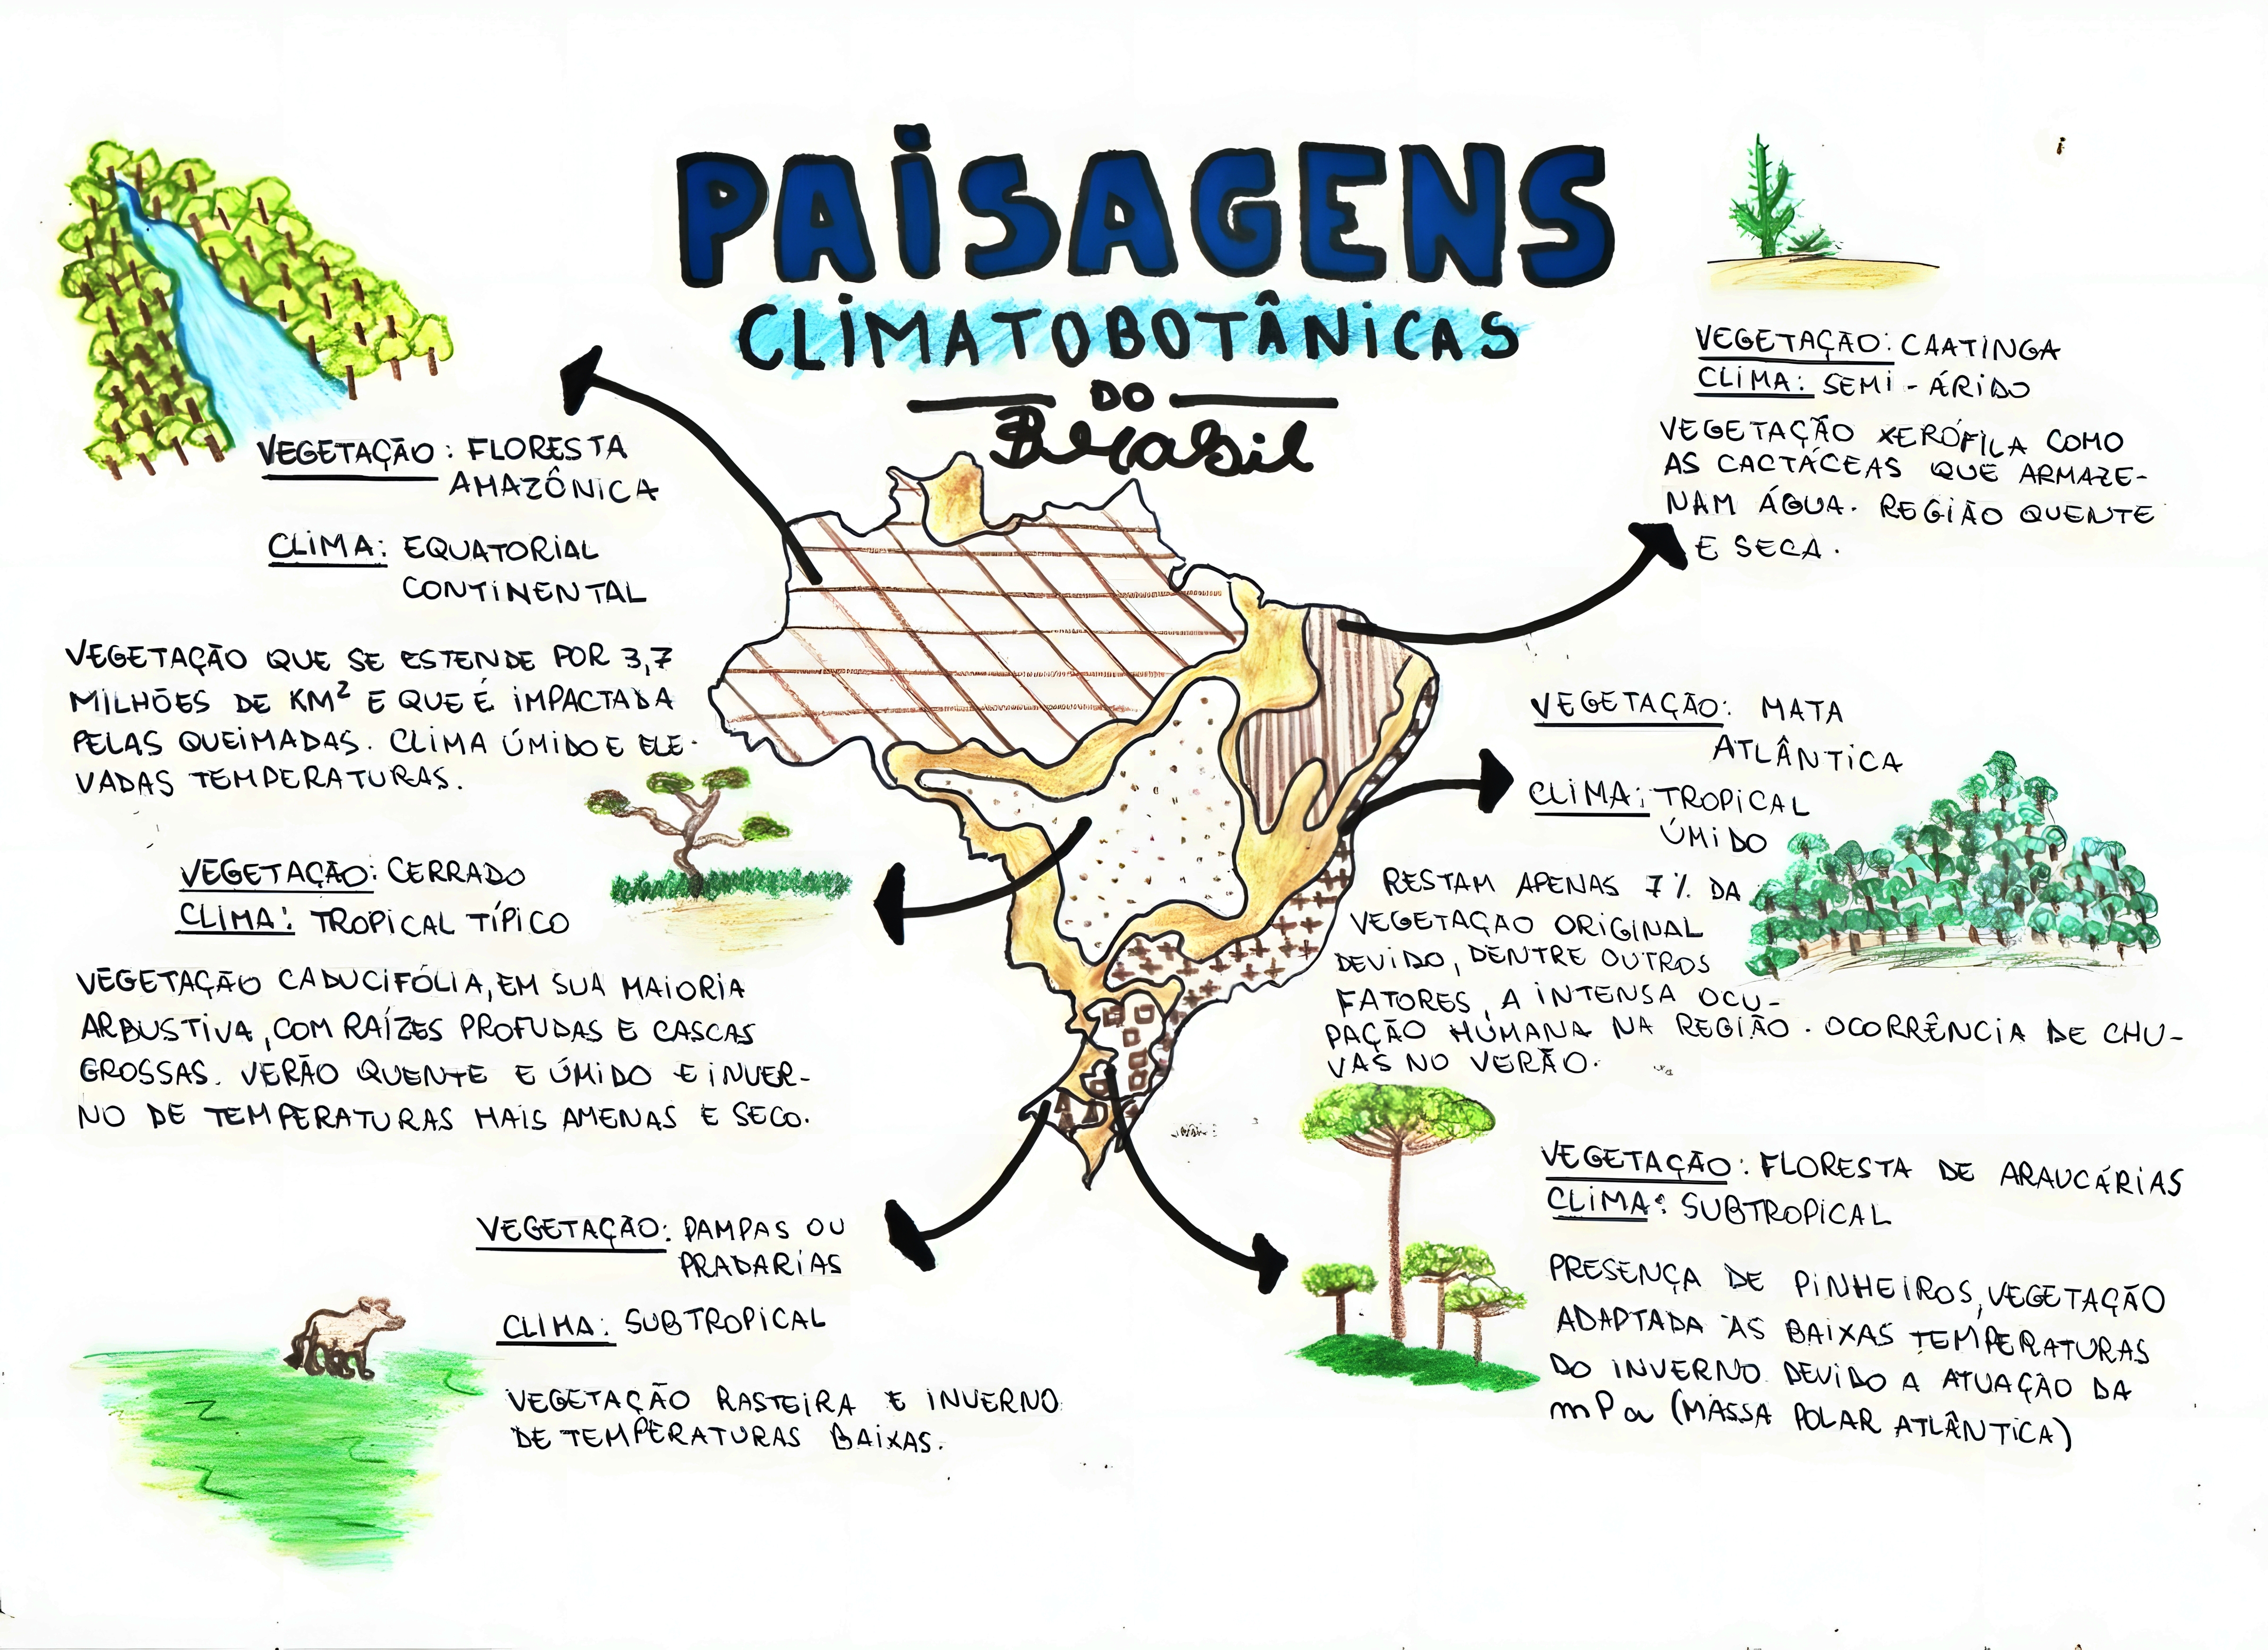 PAISAGENS
CLIMATOBOTÂNICAS
DO
Brasil
VEGETAÇÃO: FLORESTA
AMAZÔNICA
CLIMA: EQUATORIAL
CONTINENTAL
VEGETAÇÃO QUE SE ESTENDE POR 3,7
MILHÕES DE KM² E QUE É IMPACTADA
PELAS QUEIMADAS. CLIMA ÚMIDO E ELE-
VADAS TEMPERATURAS.
VEGETAÇÃO: CERRADO
CLIMA: TROPICAL TÍPICO
VEGETAÇÃO CADUCIFÓLIA, EM SUA MAIORIA
ARBUSTIVA, COM RAÍZES PROFUDAS E CASCAS
GROSSAS. VERÃO QUENTE E ÚMIDO E INVER-
NO DE TEMPERATURAS MAIS AMENAS E SECO.
VEGETAÇÃO: PAMPAS OU
PRADARIAS
CLIMA: SUBTROPICAL
VEGETAÇÃO RASTEIRA E INVERNO
DE TEMPERATURAS BAIXAS.
VEGETAÇÃO: CAATINGA
CLIMA: SEMI-ÁRIDO
VEGETAÇÃO XERÓFILA COMO
AS CACTÁCEAS QUE ARMAZE-
NAM ÁGUA. REGIÃO QUENTE
E SECA.
VEGETAÇÃO: MATA
ATLÂNTICA
CLIMA: TROPICAL
ÚMIDO
RESTAM APENAS 7% DA
VEGETAÇÃO ORIGINAL
DEVIDO, DENTRE OUTROS
FATORES, A INTENSA OCU-
PAÇÃO HUMANA NA REGIÃO. OCORRÊNCIA DE CHU-
VAS NO VERÃO.
VEGETAÇÃO: FLORESTA DE ARAUCÁRIAS
CLIMA: SUBTROPICAL
PRESENÇA DE PINHEIROS, VEGETAÇÃO
ADAPTADA ÀS BAIXAS TEMPERATURAS
DO INVERNO DEVIDO A ATUAÇÃO DA
mPa (MASSA POLAR ATLÂNTICA)